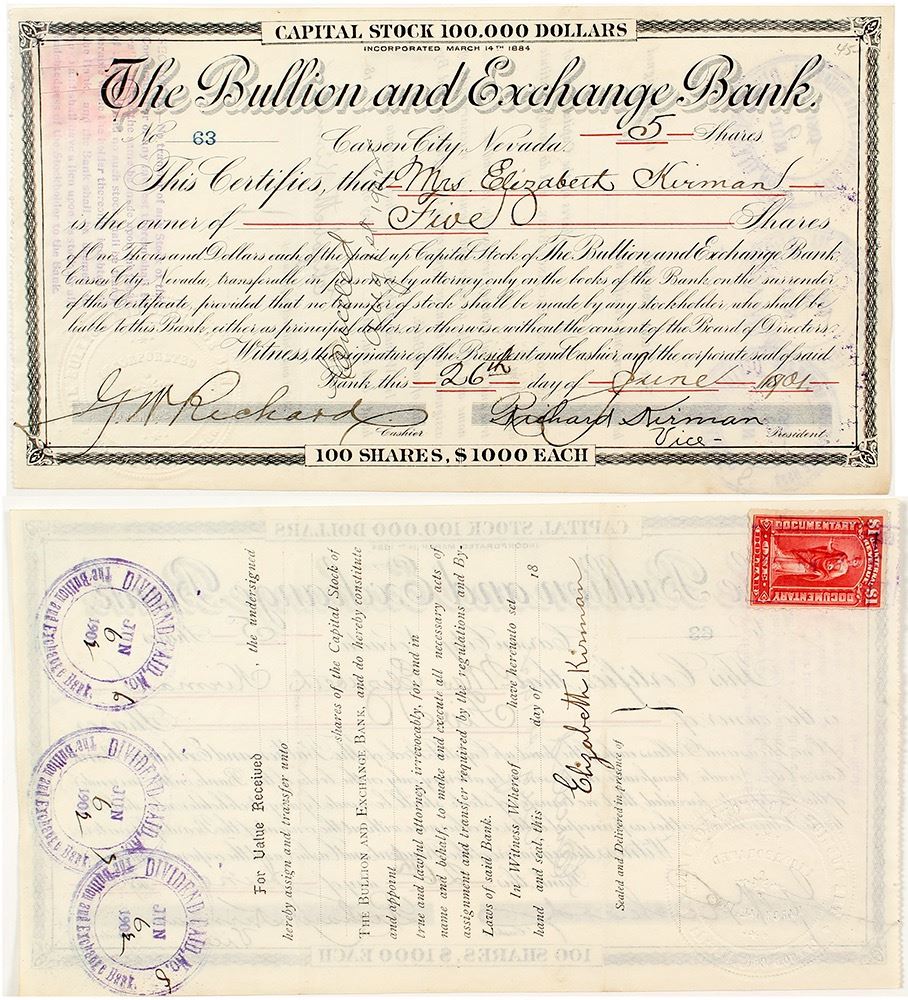 CAPITAL STOCK 100.000 DOLLARS
INCORPORATED MARCH 14TH 1884
45-
The Bullion and Exchange Bank.
No 63 Carson City, Nevada. 5 Shares
This Certifies, that Mrs. Elizabeth Kirman
is the owner of Five Shares
of One Thousand Dollars each of the paid up Capital Stock of The Bullion and Exchange Bank,
Carson City, Nevada, transferable in person or by attorney only on the books of the Bank on the surrender
of this Certificate, provided that no transfer of stock shall be made by any stockholder, who shall be
liable to this Bank, either as principal debtor, or otherwise without the consent of the Board of Directors.
Witness, the signature of the President and Cashier and the corporate seal of said
Bank this 26th day of June 1901
G W Richard Cashier Richard Kirman Vice- President.
Cancelled
100 SHARES, $1000 EACH
For Value Received , the undersigned
hereby assign and transfer unto
shares of the Capital Stock of
THE BULLION AND EXCHANGE BANK, and do hereby constitute
and appoint
true and lawful attorney, irrevocably, for and in
name and behalf, to make and execute all necessary acts of
assignment and transfer required by the regulations and By-
Laws of said Bank.
In Witness Whereof have hereunto set
hand and seal, this day of 18
Elizabeth Kirman
Sealed and Delivered in presence of
DIVIDEND PAID, No.
JUN
6
1903
The Bullion and Exchange Bank.
DIVIDEND PAID, No.
JUN
6
1903
The Bullion and Exchange Bank.
DIVIDEND PAID, No.
JUN
6
1903
The Bullion and Exchange Bank.
DOCUMENTARY
$1 $1
ONE DOLLAR
DOCUMENTARY